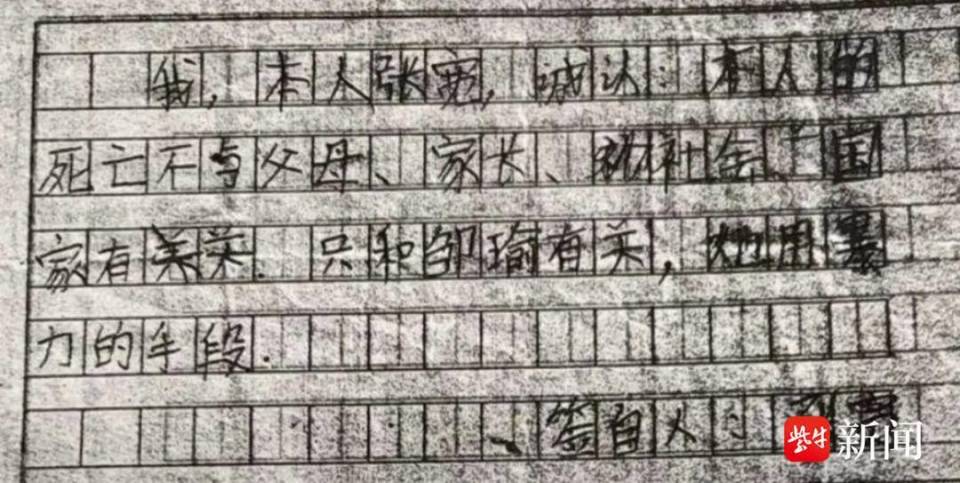 我，本人张宽，诚认：本人的
死亡不与父母、家长、社会、国
家有关. 只和邹瑜有关，她用暴
力的手段.
签白人：
紫牛新闻